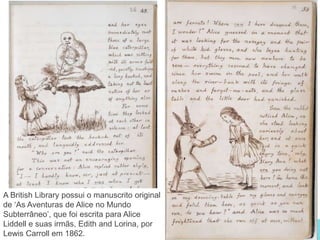 and her eyes
immediately met
those of a large
blue caterpillar,
which was sitting
with its arms fold-
-ed, quietly smoking
a long hookah, and
taking not the least
notice of her or
of anything else.
For some
time they looked
at each other in
silence: at last
the caterpillar took the hookah out of its
mouth, and languidly addressed her.
"Who are you?" said the caterpillar.
This was not an encouraging opening
for a conversation: Alice replied rather shyly,
"I — I hardly know, sir, just at present —
at least I know who I was when I got
A British Library possui o manuscrito original
de 'As Aventuras de Alice no Mundo
Subterrâneo', que foi escrita para Alice
Liddell e suas irmãs, Edith and Lorina, por
Lewis Carroll em 1862.
are ferrets! Where can I have dropped them,
I wonder?" Alice guessed in a moment that
it was looking for the nosegay and the pair
of white kid gloves, and she began hunting
for them, but they were now nowhere to be
seen — everything seemed to have changed
since her swim in the pool, and her walk
along the river-bank with its fringe of
rushes and forget-me-nots, and the glass
table and the little door had vanished.
Soon the rabbit
noticed Alice, as
she stood looking
curiously about
her, and at once
said in a quick
angry tone, "why,
Mary Ann! what
are you doing out
here? Go home this
moment, and look
on my dressing-table for my gloves and nosegay,
and fetch them here, as quick as you can
run, do you hear?" and Alice was so much
frightened that she ran off at once, without